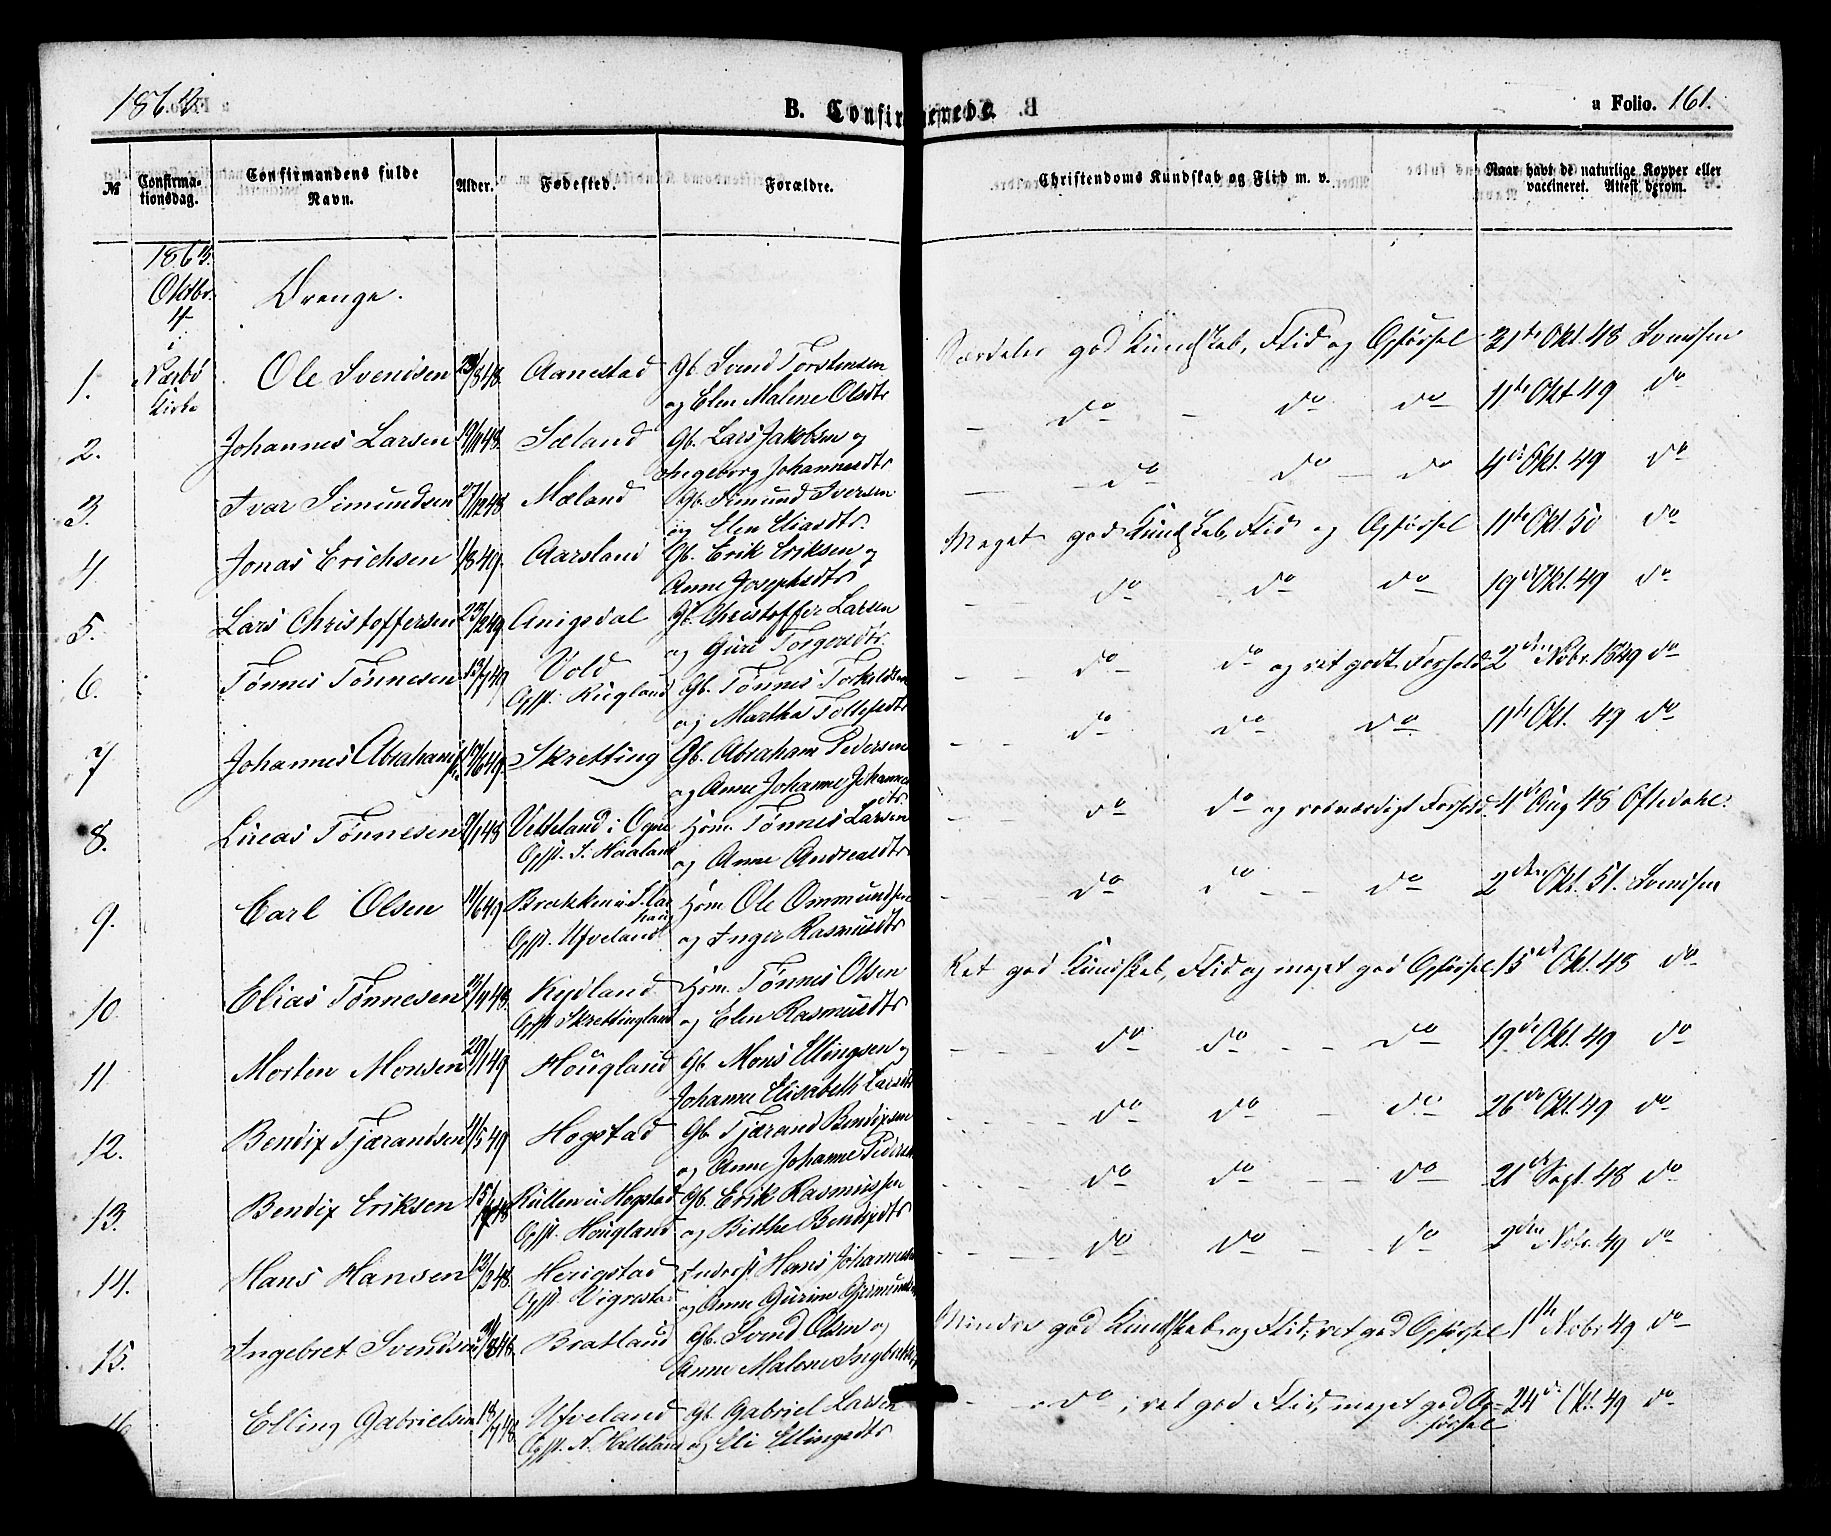 1863.
B. Confirmerede.
a Folio. 161.
№ Confirma-tionsdag. Confirmandens fulde Navn. Alder. Fødested. Forældre. Christendoms Kundskab og Flid m. v. Naar havt de naturlige Kopper eller vaccineret. Attest derom.
1863.
Oktbr.
4
i
Nærbö
Kirke
Drenge.
1. Ole Svendsen 23/8 48. Aanestad Gb. Svend Torstensen og Elen Malene Olsdtr Særdeles god Kundskab, Flid og Opførsel 31te Okt. 48 Svendsen
2. Johannes Larsen 48. Sæland Gb. Lars Jakobsen og Ingeborg Johannesdtr do do do 11te Okt 49 do
3. Ivar Simundsen 27/12 48 Mæland Gb. Simund Iversen og Elen Eliasdtr. do do do 4de Okt. 49 do
4. Jonas Erichsen 1/8 49. Aarsland Gb. Erik Eriksen og Anne Josephsdtr Meget god Kundskab, Flid og Opførsel 11te Okt. 50 do
5. Lars Christoffersen 23/2 49 Anigsdal Gb. Christoffer Larsen og Guri Torgersdtr. do do do 19de Okt. 49 do
6. Tønnes Tønnesen 13/7 49 Vold Opff. Rugland Gb. Tønnes Torkildsen og Martha Tollefsdtr do do og ret godt Forhold 2den Nobr. 1849 do
7 Johannes Abrahams. 17/6 49 Skretting Gb. Abraham Pedersen og Anne Johanne Johannesdtr. do do do 11te Okt. 49 do
8. Lucas Tønnesen 9/1 48 Vetteland i Ogne Opff. S. Haaland Hsm. Tønnes Larsen og Anne Andreasdtr do do og rosværdigt Forhold. 4de Aug 48 Oftedahl.
9. Carl Olsen 11/6 49 Brækken u. S. Varhaug Opff. Ufveland Hsm. Ole Ommundsen og Inger Rasmusdtr do do do 2den Okt. 51. Svendsen
10. Elias Tønnesen 48. Kydland Opff. Skrettingland Hsm. Tønnes Olsen og Elen Rasmusdtr Ret god Kundskab, Flid og meget god Opførsel 15de Okt. 48 do
11. Morten Monsen 29/1 49 Høugland Gb. Mons Ellingsen og Johanne Elisabeth Larsdtr do do do 19de Okt. 49 do
12. Bendix Tjærandsen 4/5 49 Hogstad Gb. Tjærand Bendixsen og Anne Johanne Pedersen do do do 26de Okt. 49 do
13. Bendix Eriksen 15/ 48 Kullen u. Hogstad Opff. Høugland Gb. Erik Rasmussen og Birthe Bendixdtr do do do 21de Sept. 48 do
14. Hans Hansen 12/3 48. Herigstad Opff. Vigrestad Inderst Hans Johannesen og Anne Gurine Gjermunds do do do 2den Nobr. 49 do
15. Ingebret Svendsen 48. Bratland Gb. Svend Olsen og Anne Malene Ingebretsd Mindre god Kundskab og Flid, ret god Opførsel 1te Nobr 49 do
16 Elling Gabrielsen 18/7 48 Ufveland Opff. N. Holteland Gb. Gabriel Larsen og Eli Ellingsdtr do, ret god Flid, meget god Opførsel 24de Okt. 49 do